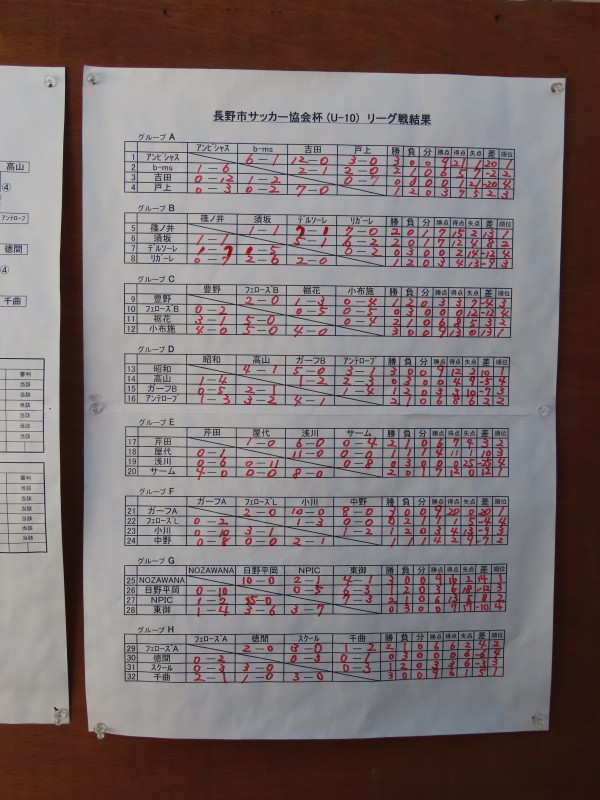 高山
④
アンテロープ
徳間
④
千曲
審判
当該
当該
当該
当該
当該
審判
当該
当該
当該
当該
当該
長野市サッカー協会杯(U-10) リーグ戦結果
グループ A
アンビシャス b-ms 吉田 戸上 勝 負 分 勝点 得点 失点 差 順位
1 アンビシャス 6-1 12-0 3-0 3 0 0 9 21 1 20 1
2 b-ms 1-6 2-1 2-0 2 1 0 6 5 7 -2 2
3 吉田 0-12 1-2 0-7 0 0 1 21 -20 4
4 戸上 0-3 0-2 7-0 1 2 0 3 7 5 2 3
グループ B
篠ノ井 須坂 デルソーレ リガーレ 勝 負 分 勝点 得点 失点 差 順位
5 篠ノ井 1-1 7-1 7-0 2 0 1 7 15 2 13 1
6 須坂 1-1 5-1 6-2 2 0 1 7 12 4 8 2
7 デルソーレ 1-7 1-5 0-2 0 3 0 0 2 14 -12 4
8 リガーレ 0-7 2-6 2-0 1 2 0 3 4 13 3
グループ C
豊野 フェローズB 裾花 小布施 勝 負 分 勝点 得点 失点 差 順位
9 豊野 2-0 1-3 0-4 1 2 0 3 3 7 -4 3
10 フェローズB 0-2 0-5 0-5 0 3 0 0 0 12 -12 4
11 裾花 3-1 5-0 0-4 2 1 0 6 8 5 3 2
12 小布施 4-0 5-0 4-0 3 0 0 9 13 0 13 1
グループ D
昭和 高山 ガーフB アンテロープ 勝 負 分 勝点 得点 失点 差 順位
13 昭和 4-1 5-0 3-1 3 0 0 9 12 2 10 1
14 高山 1-4 1-2 2-3 0 3 0 0 4 9 -5 4
15 ガーフB 0-5 2-1 1-4 1 2 0 3 3 10 -7 3
16 アンテロープ 1-3 3-2 4-1 2 1 0 6 8 6 2 2
グループ E
芹田 屋代 浅川 サーム 勝 負 分 勝点 得点 失点 差 順位
17 芹田 1-0 6-0 0-4 2 1 0 6 7 4 3 2
18 屋代 0-1 11-0 0-0 1 1 1 4 11 1 10 3
19 浅川 0-6 0-11 0-8 0 3 0 0 0 25 -25 4
20 サーム 4-0 0-0 8-0 2 0 1 7 12 0 12 1
グループ F
ガーフA フェローズL 小川 中野 勝 負 分 勝点 得点 失点 差 順位
21 ガーフA 2-0 10-0 8-0 3 0 0 9 20 0 20 1
22 フェローズL 0-2 1-3 0-0 0 2 1 1 1 5 -4 4
23 小川 0-10 3-1 1-2 1 2 0 3 4 13 -9 3
24 中野 0-8 0-0 2-1 1 1 1 4 2 -7 2
グループ G
NOZAWANA 日野平岡 NPIC 東御 勝 負 分 勝点 得点 失点 差 順位
25 NOZAWANA 10-0 2-1 4-1 3 0 0 9 16 2 14 1
26 日野平岡 0-10 0-5 -3 1 2 0 3 6 18 -12 3
27 NPIC 1-2 -0 7-3 2 1 0 6 13 5 8 2
28 東御 1-4 3-6 3-7 0 3 0 0 7 17 -10 4
グループ H
フェローズA 徳間 スクール 千曲 勝 負 分 勝点 得点 失点 差 順位
29 フェローズA 2-0 3-0 1-2 2 1 0 6 6 2 4 2
30 徳間 0-2 0-3 0-1 0 3 0 0 0 6 -6 4
31 スクール 0-3 3-0 0-3 1 2 0 3 3 6 -3 3
32 千曲 2-1 1-0 3-0 3 0 0 9 6 1 5 1